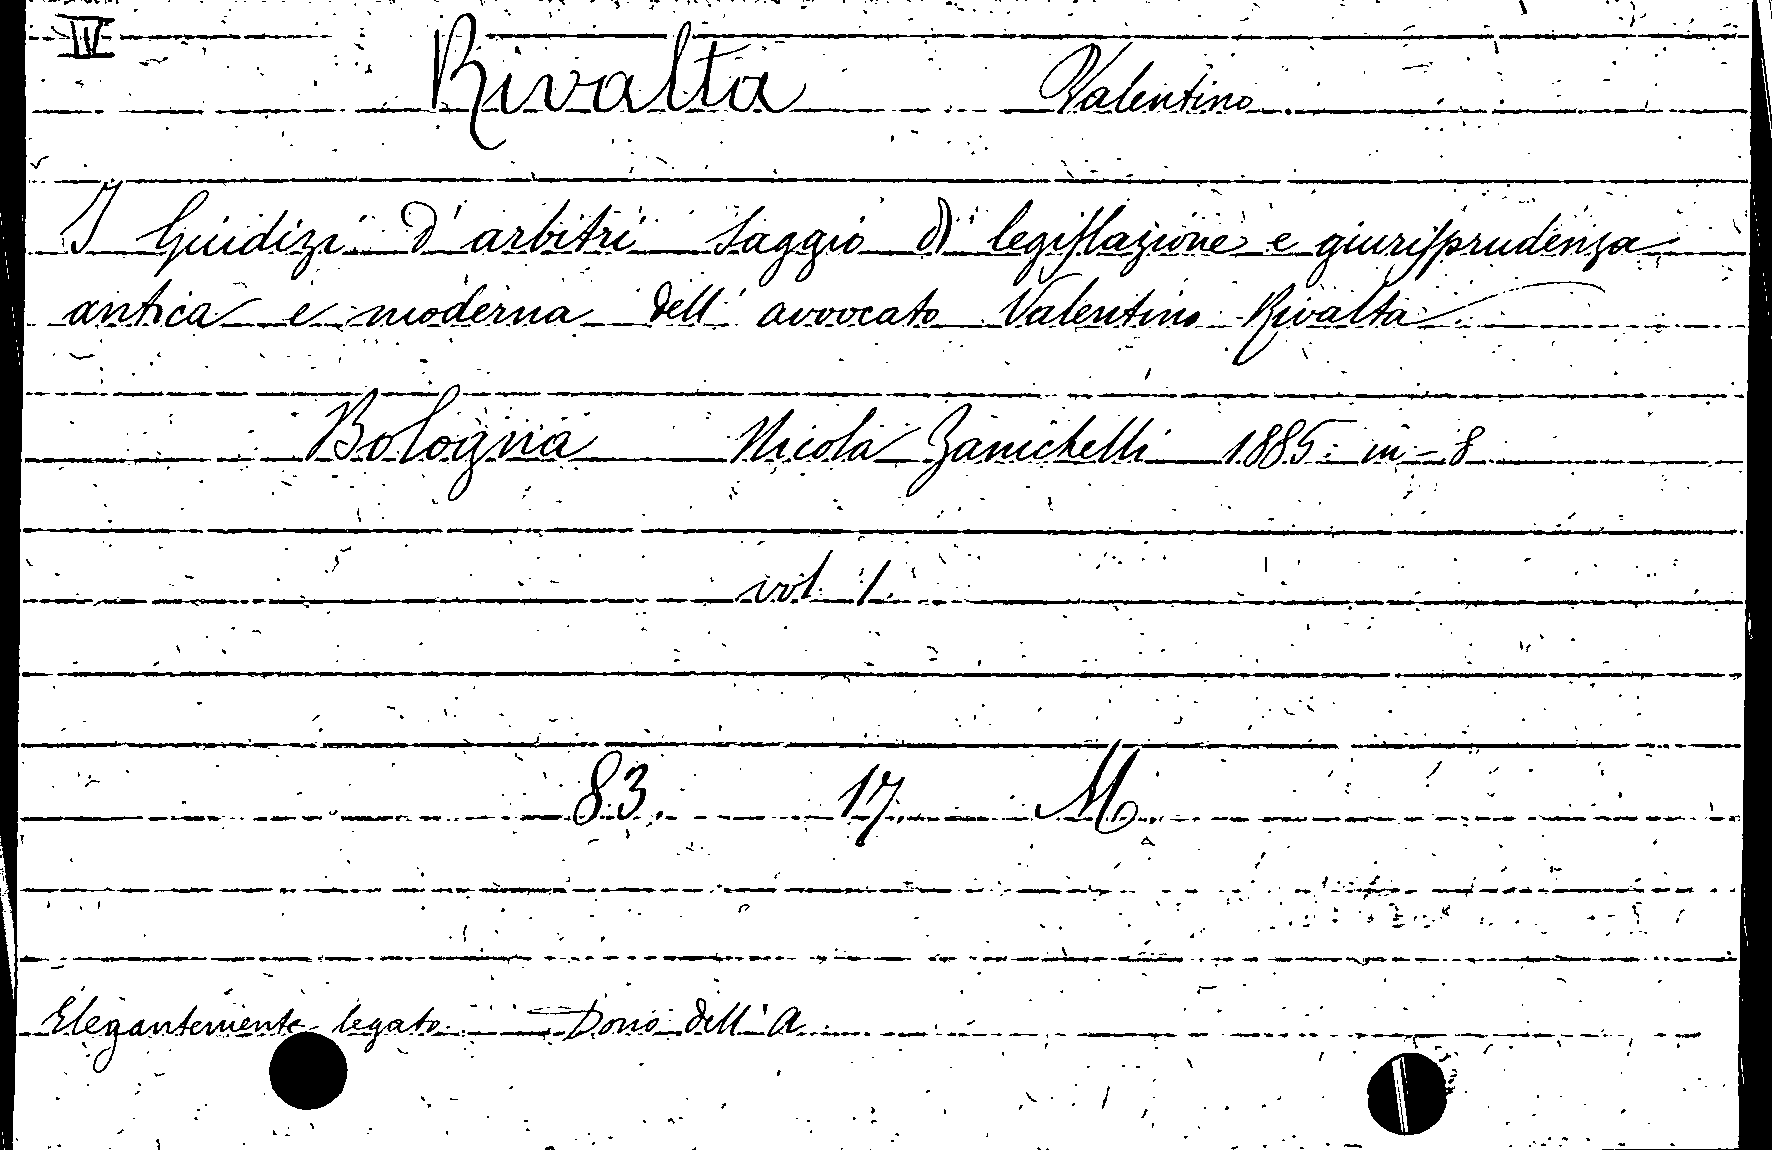 IV
Rivalta Valentino
I Giudizi d'arbitri Saggio di legislazione e giurisprudenza
antica e moderna dell'avvocato Valentino Rivalta
Bologna Nicola Zanichelli 1885. in-8
vol. 1.
83. 17. M.
Elegantemente legato. Dono dell'A.